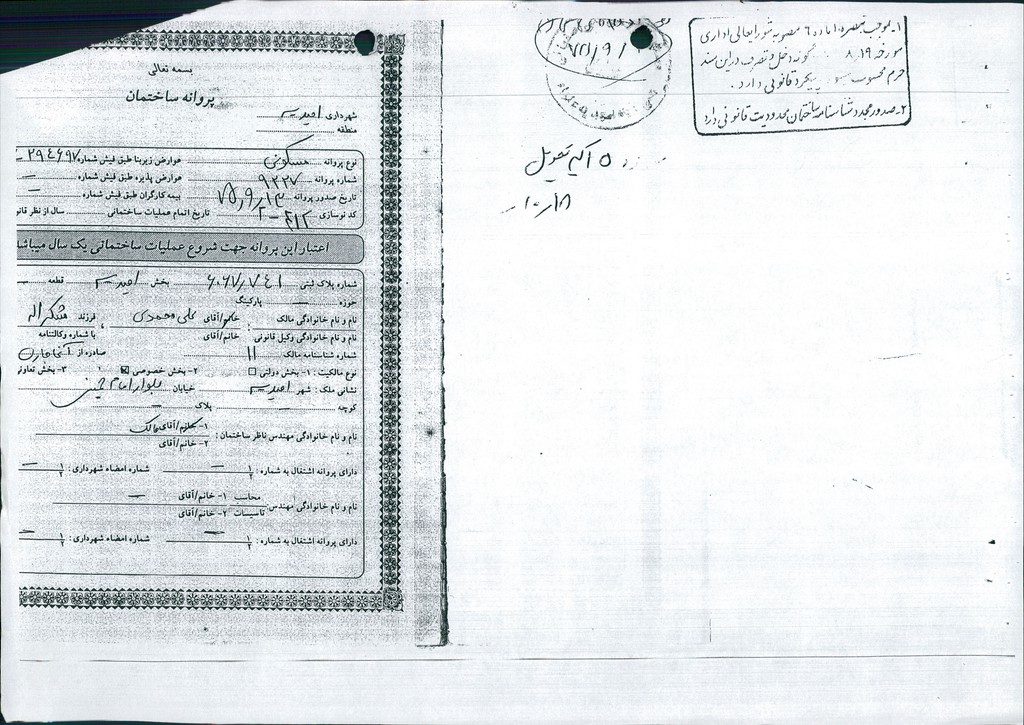 بسمه تعالی
پروانه ساختمان
شهرداری امیدیه
منطقه
نوع پروانه مسکونی عوارض زیربنا طبق فیش شماره ۲۹۴۶۹۷
شماره پروانه ۹۲۲۷ عوارض پذیره طبق فیش شماره
تاریخ صدور پروانه ۷۵٫۹٫۱۳ بیمه کارگران طبق فیش شماره
کد نوسازی تاریخ اتمام عملیات ساختمانی سال از نظر قانو
اعتبار این پروانه جهت شروع عملیات ساختمانی یک سال میباش
شماره پلاک ثبتی ۶۰۶۷٫۷۴۱ بخش امیدیه قطعه
حوزه پارکینگ
نام و نام خانوادگی مالک : خانم/آقای علی محمدی فرزند شکراله
نام و نام خانوادگی وکیل قانونی : خانم/آقای با شماره وکالتنامه
شماره شناسنامه مالک ۱۱ صادره از آغاجاری
نوع مالکیت : ۱- بخش دولتی ۲- بخش خصوصی ۳- بخش تعاونی
نشانی ملک : شهر امیدیه خیابان بلوار امام خمینی
کوچه پلاک
نام و نام خانوادگی مهندس ناظر ساختمان : ۱- خانم/آقای مالک
۲- خانم/آقای
دارای پروانه اشتغال به شماره : ۱ ۲ شماره امضاء شهرداری : ۱ ۲
نام و نام خانوادگی مهندس محاسب ۱- خانم/آقای
تاسیسات ۲- خانم/آقای
دارای پروانه اشتغال به شماره : ۱ ۲ شماره امضاء شهرداری : ۱ ۲
۱- بموجب تبصره ماده ۶ مصوبه شورایعالی اداری
مورخه ۸٫۱۹ گونه دخل و تصرف در این سند
جرم محسوب پیگرد قانونی دارد .
۲- صدور مجدد شناسنامه ساختمان محدودیت قانونی دارد
تحویل